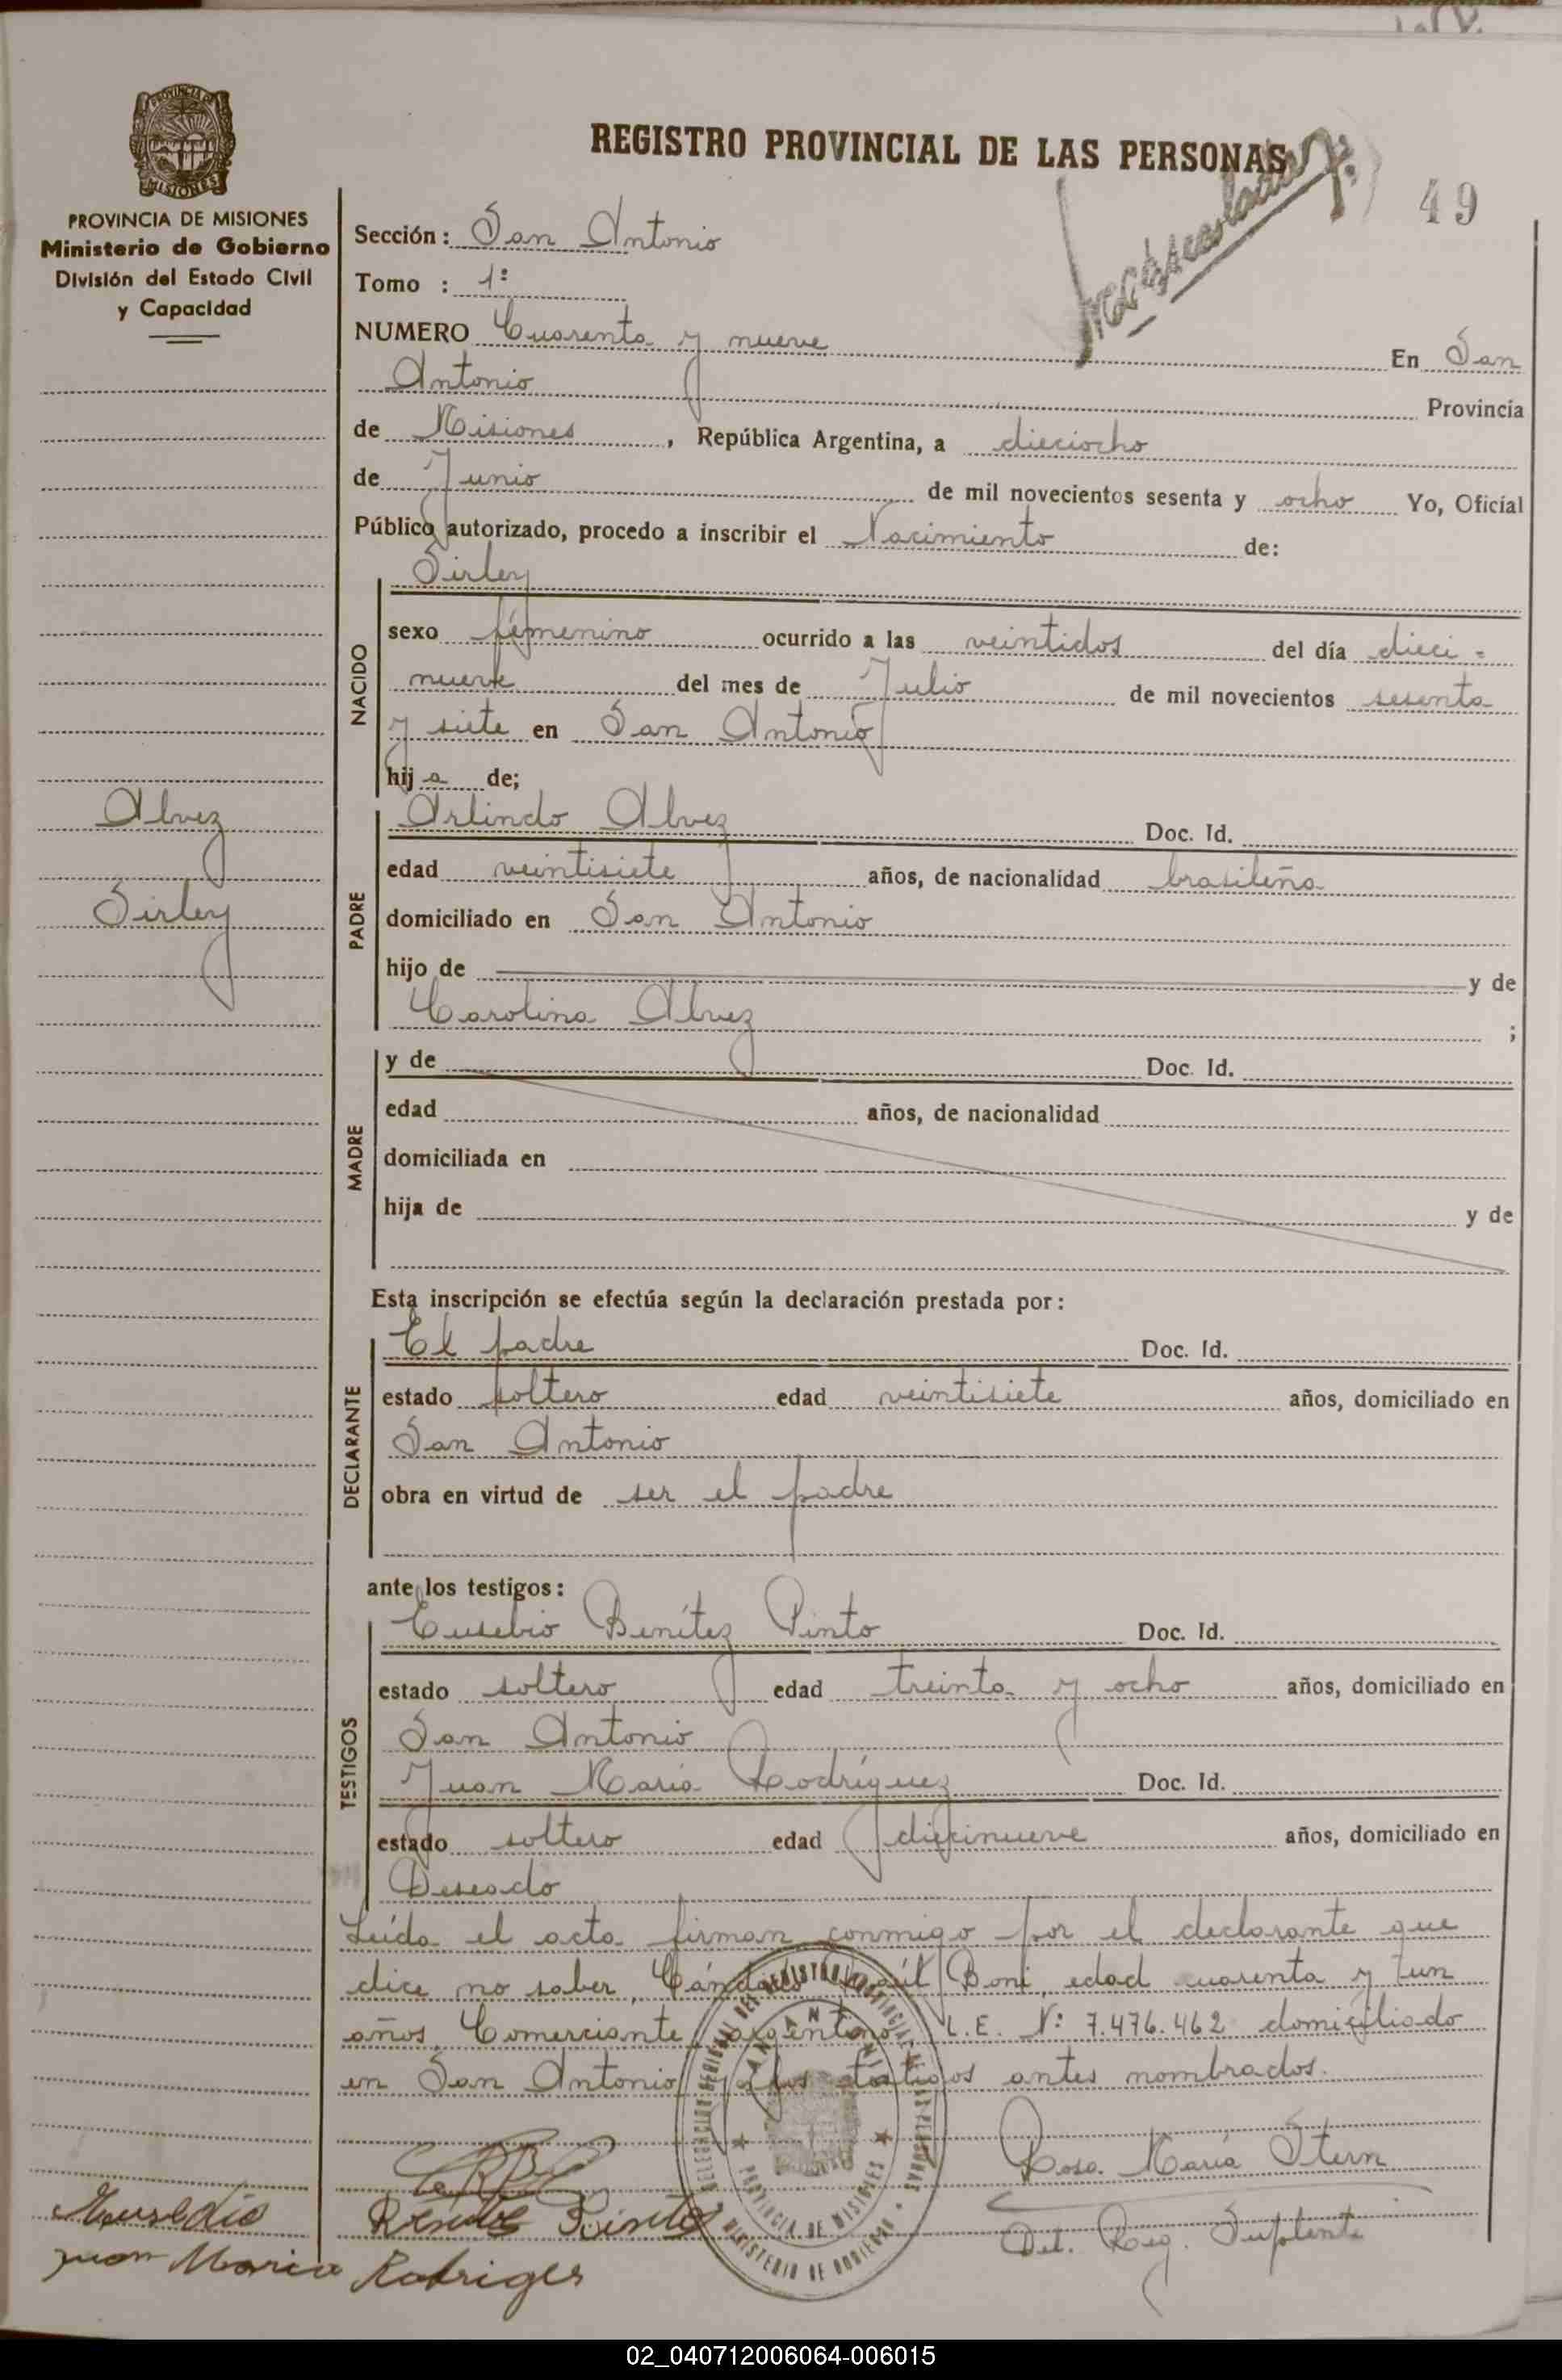 REGISTRO PROVINCIAL DE LAS PERSONAS
49
PROVINCIA DE MISIONES
Ministerio de Gobierno
División del Estado Civil
y Capacidad
Sección: San Antonio
Tomo : 1º
NUMERO Cuarenta y nueve En San
Antonio Provincia
de Misiones, República Argentina, a dieciocho
de Junio de mil novecientos sesenta y ocho Yo, Oficial
Público autorizado, procedo a inscribir el Nacimiento de:
NACIDO
Sirley
sexo femenino ocurrido a las veintidos del día dieci=
nueve del mes de Julio de mil novecientos sesenta
y siete en San Antonio
hija de;
Alvez
Sirley
PADRE
Arlindo Alvez Doc. Id.
edad veintisiete años, de nacionalidad brasileña
domiciliado en San Antonio
hijo de y de
Carolina Alvez ;
MADRE
y de Doc. Id.
edad años, de nacionalidad
domiciliada en
hija de y de
Esta inscripción se efectúa según la declaración prestada por:
DECLARANTE
El padre Doc. Id.
estado soltero edad veintisiete años, domiciliado en
San Antonio
obra en virtud de ser el padre
ante los testigos:
TESTIGOS
Eusebio Benítez Pinto Doc. Id.
estado soltero edad treinta y ocho años, domiciliado en
San Antonio
Juan María Rodríguez Doc. Id.
estado soltero edad diecinueve años, domiciliado en
Deseado
Leída el acta firman conmigo por el declarante que
dice no saber, Cándido Raúl Boni, edad cuarenta y un
años, Comerciante, argentino, L.E. Nº 7.476.462 domiciliado
en San Antonio y los testigos antes nombrados.
Rosa María Stern
Del. Reg. Suplente
Eusebio Benites Pinto
Juan Maria Rodriges
SAN ANTONIO
PROVINCIA DE MISIONES
MINISTERIO DE GOBIERNO
02_040712006064-006015